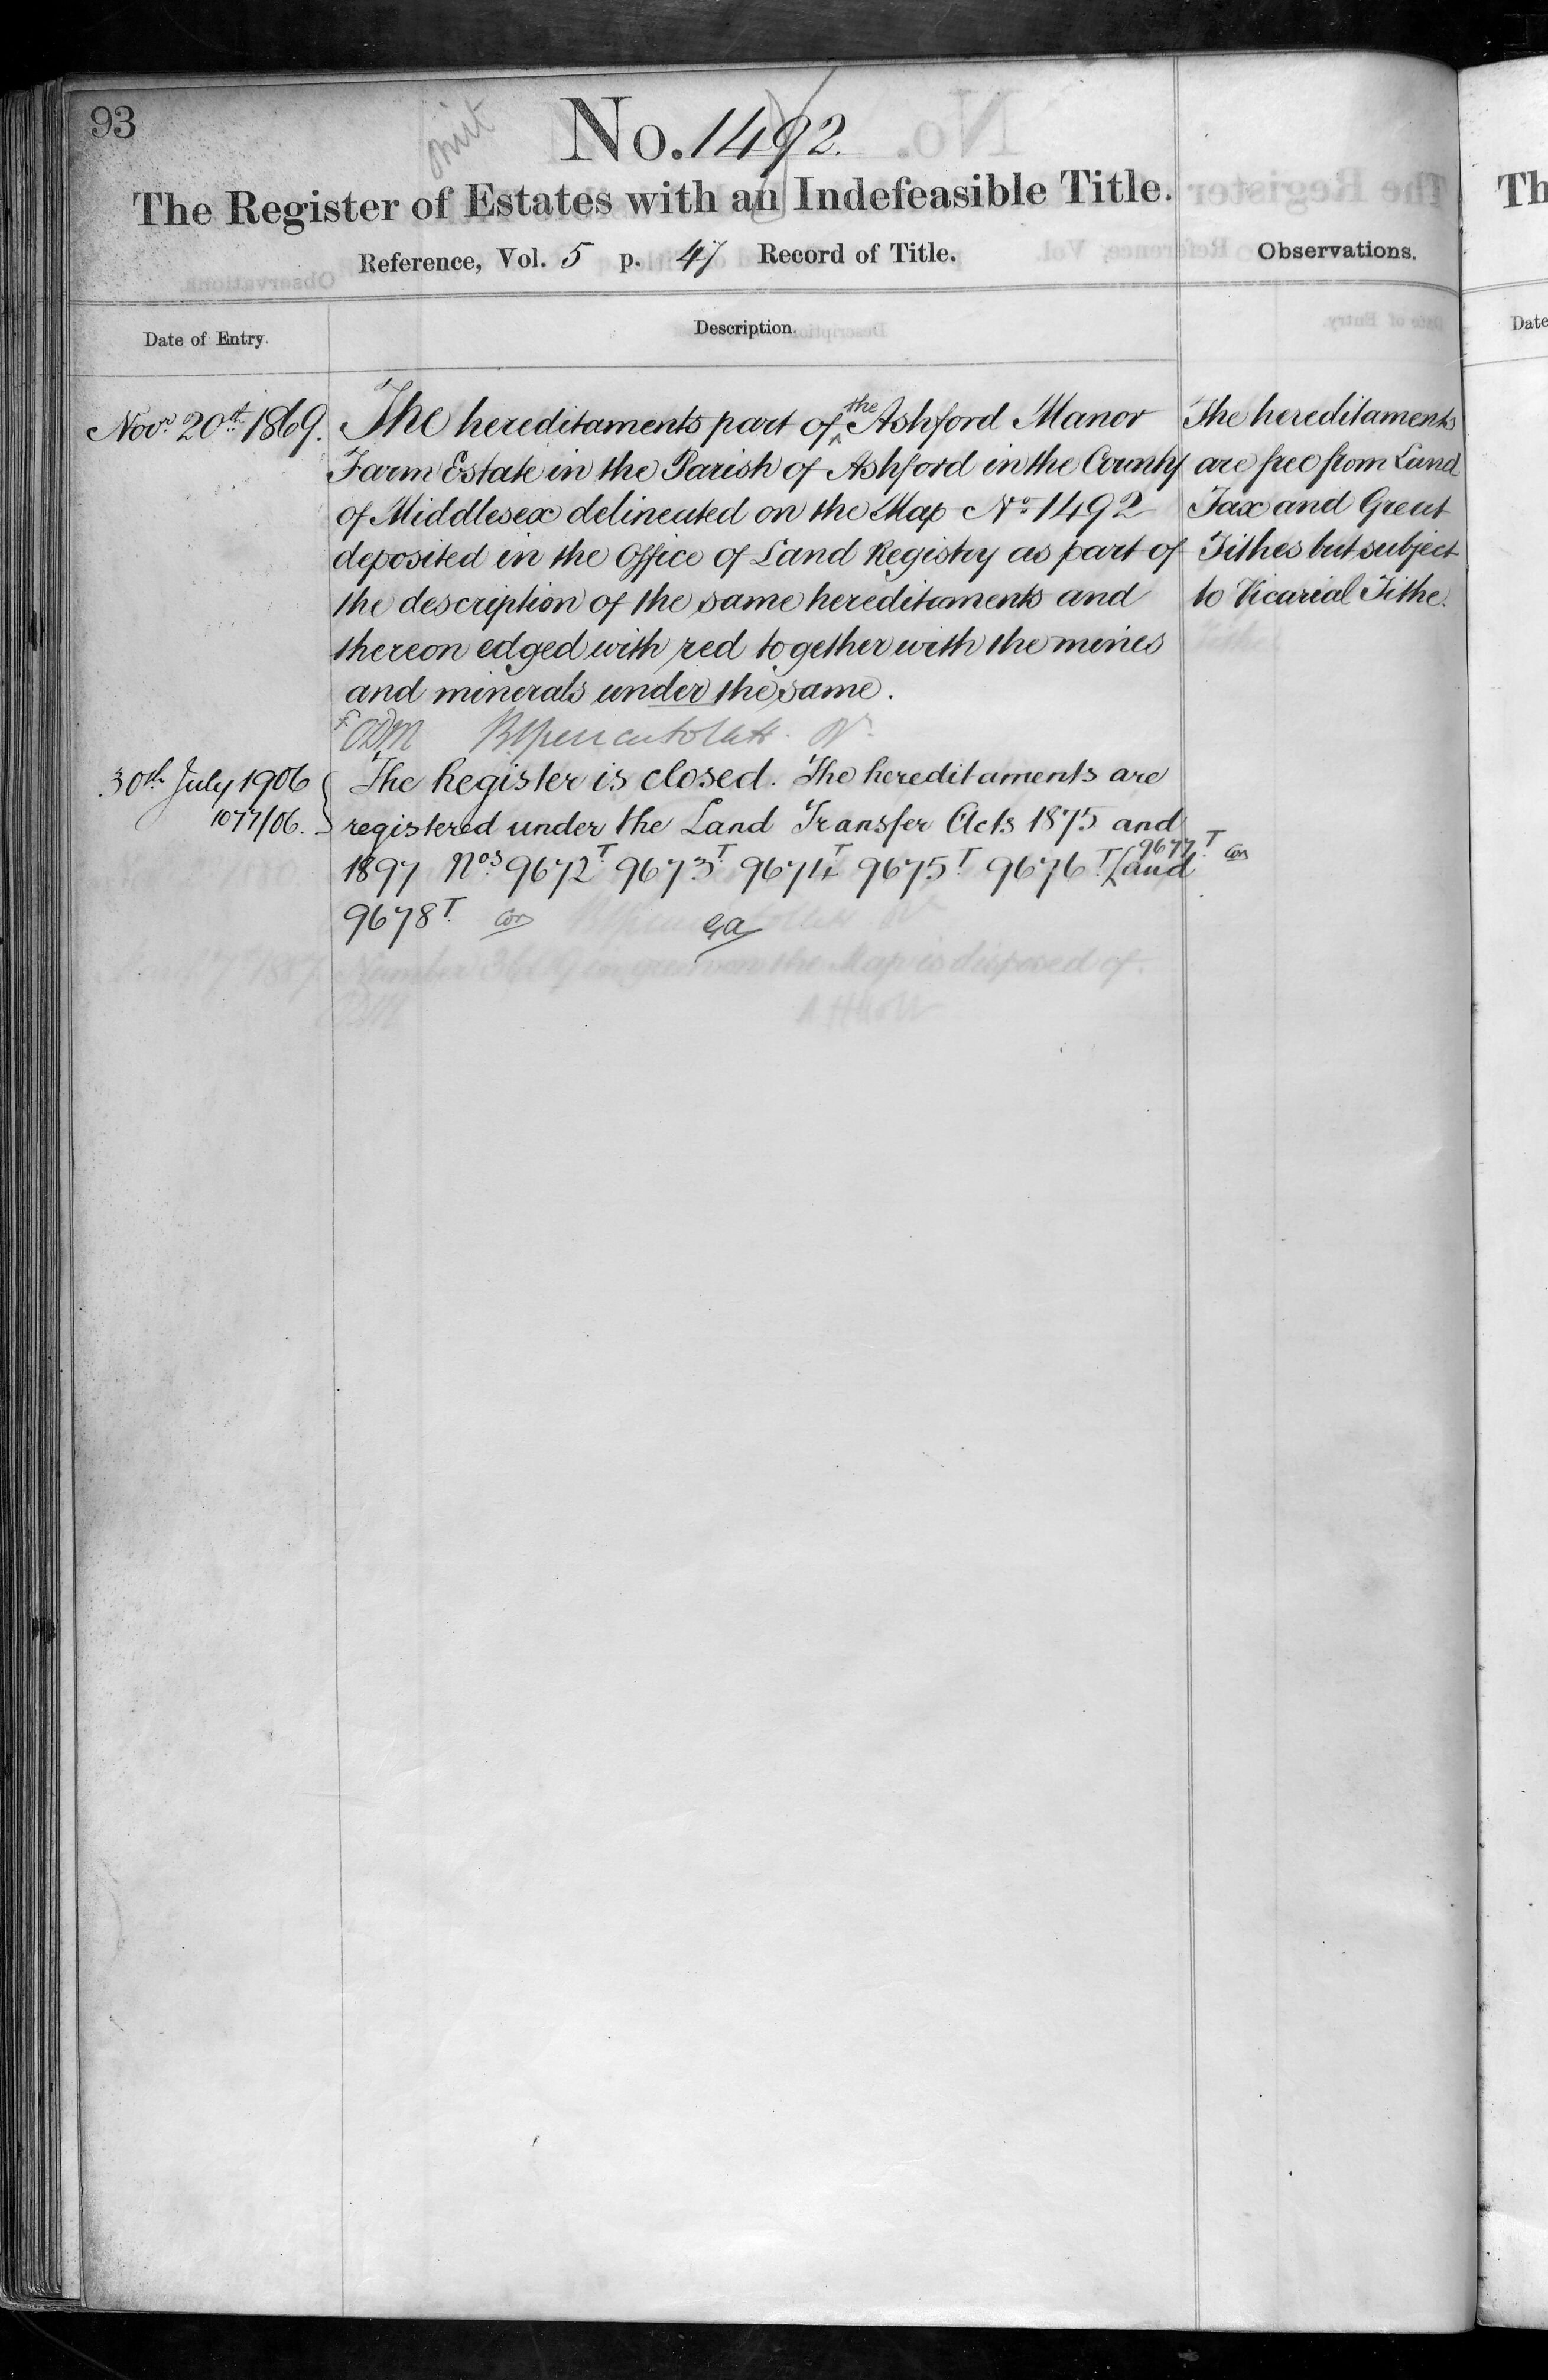 93
omit
No. 1492.
The Register of Estates with an Indefeasible Title.
Reference, Vol. 5 p. 47 Record of Title.
Observations.
Date of Entry.
Description.
Novr. 20th 1869.
The hereditaments part of the Ashford Manor
Farm Estate in the Parish of Ashford in the County
of Middlesex delineated on the Map No. 1492
deposited in the Office of Land Registry as part of
the description of the same hereditaments and
thereon edged with red together with the mines
and minerals under the same.
The hereditaments
are free from Land
Tax and Great
Tithes but subject
to Vicarial Tithe.
30th July 1906
1077/06.
The Register is closed. The hereditaments are
registered under the Land Transfer Acts 1875 and
1897 Nos. 9672T 9673T 9674T 9675T 9676T 9677T and
9678T.
Th
Date